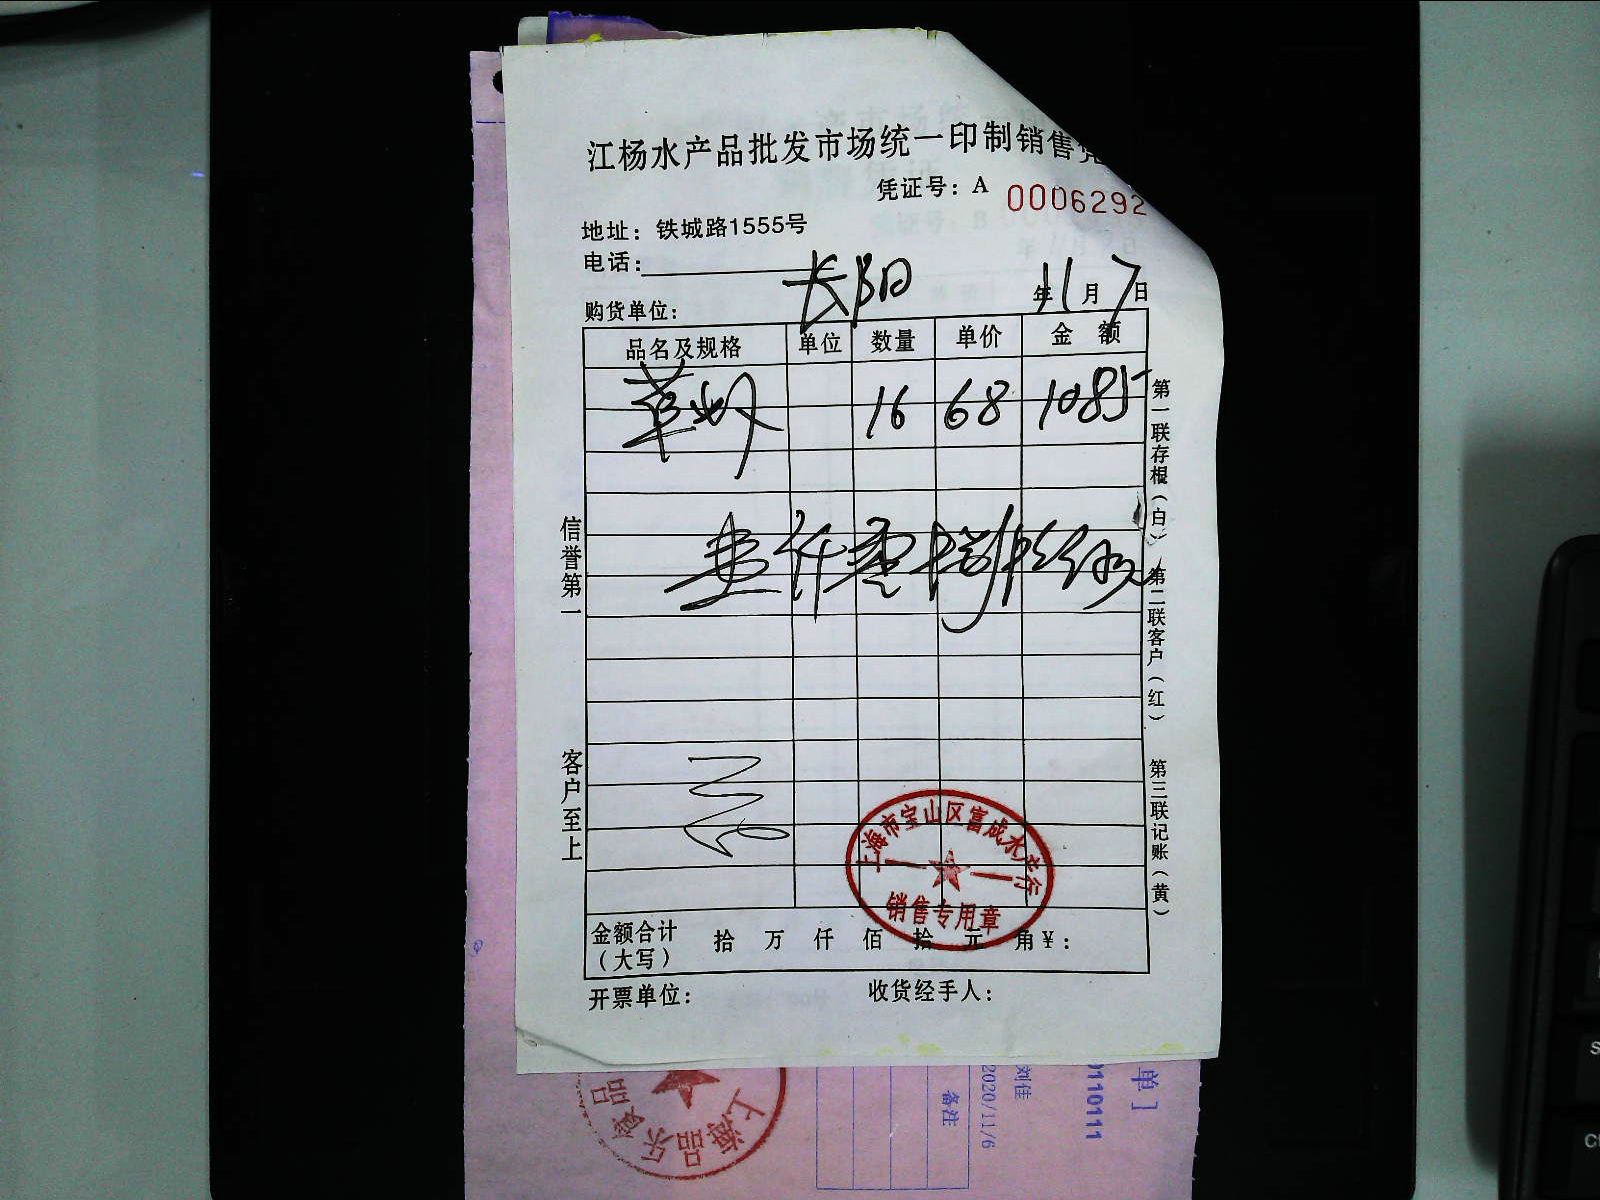 江杨水产品批发市场统一印制销售凭
凭证号：A 0006292
地址：铁城路1555号
电话：
购货单位： 长阳 年11月7日
品名及规格 单位 数量 单价 金额
16 68 1085
壹仟零捌拾伍元
信誉第一
客户至上
第一联存根（白） 第二联客户（红） 第三联记账（黄）
上海市宝山区富成水产行
销售专用章
金额合计（大写） 拾 万 仟 佰 拾 元 角 ¥：
开票单位： 收货经手人：
单]
0110111
刘佳
2020/11/6
备注
上海品乐